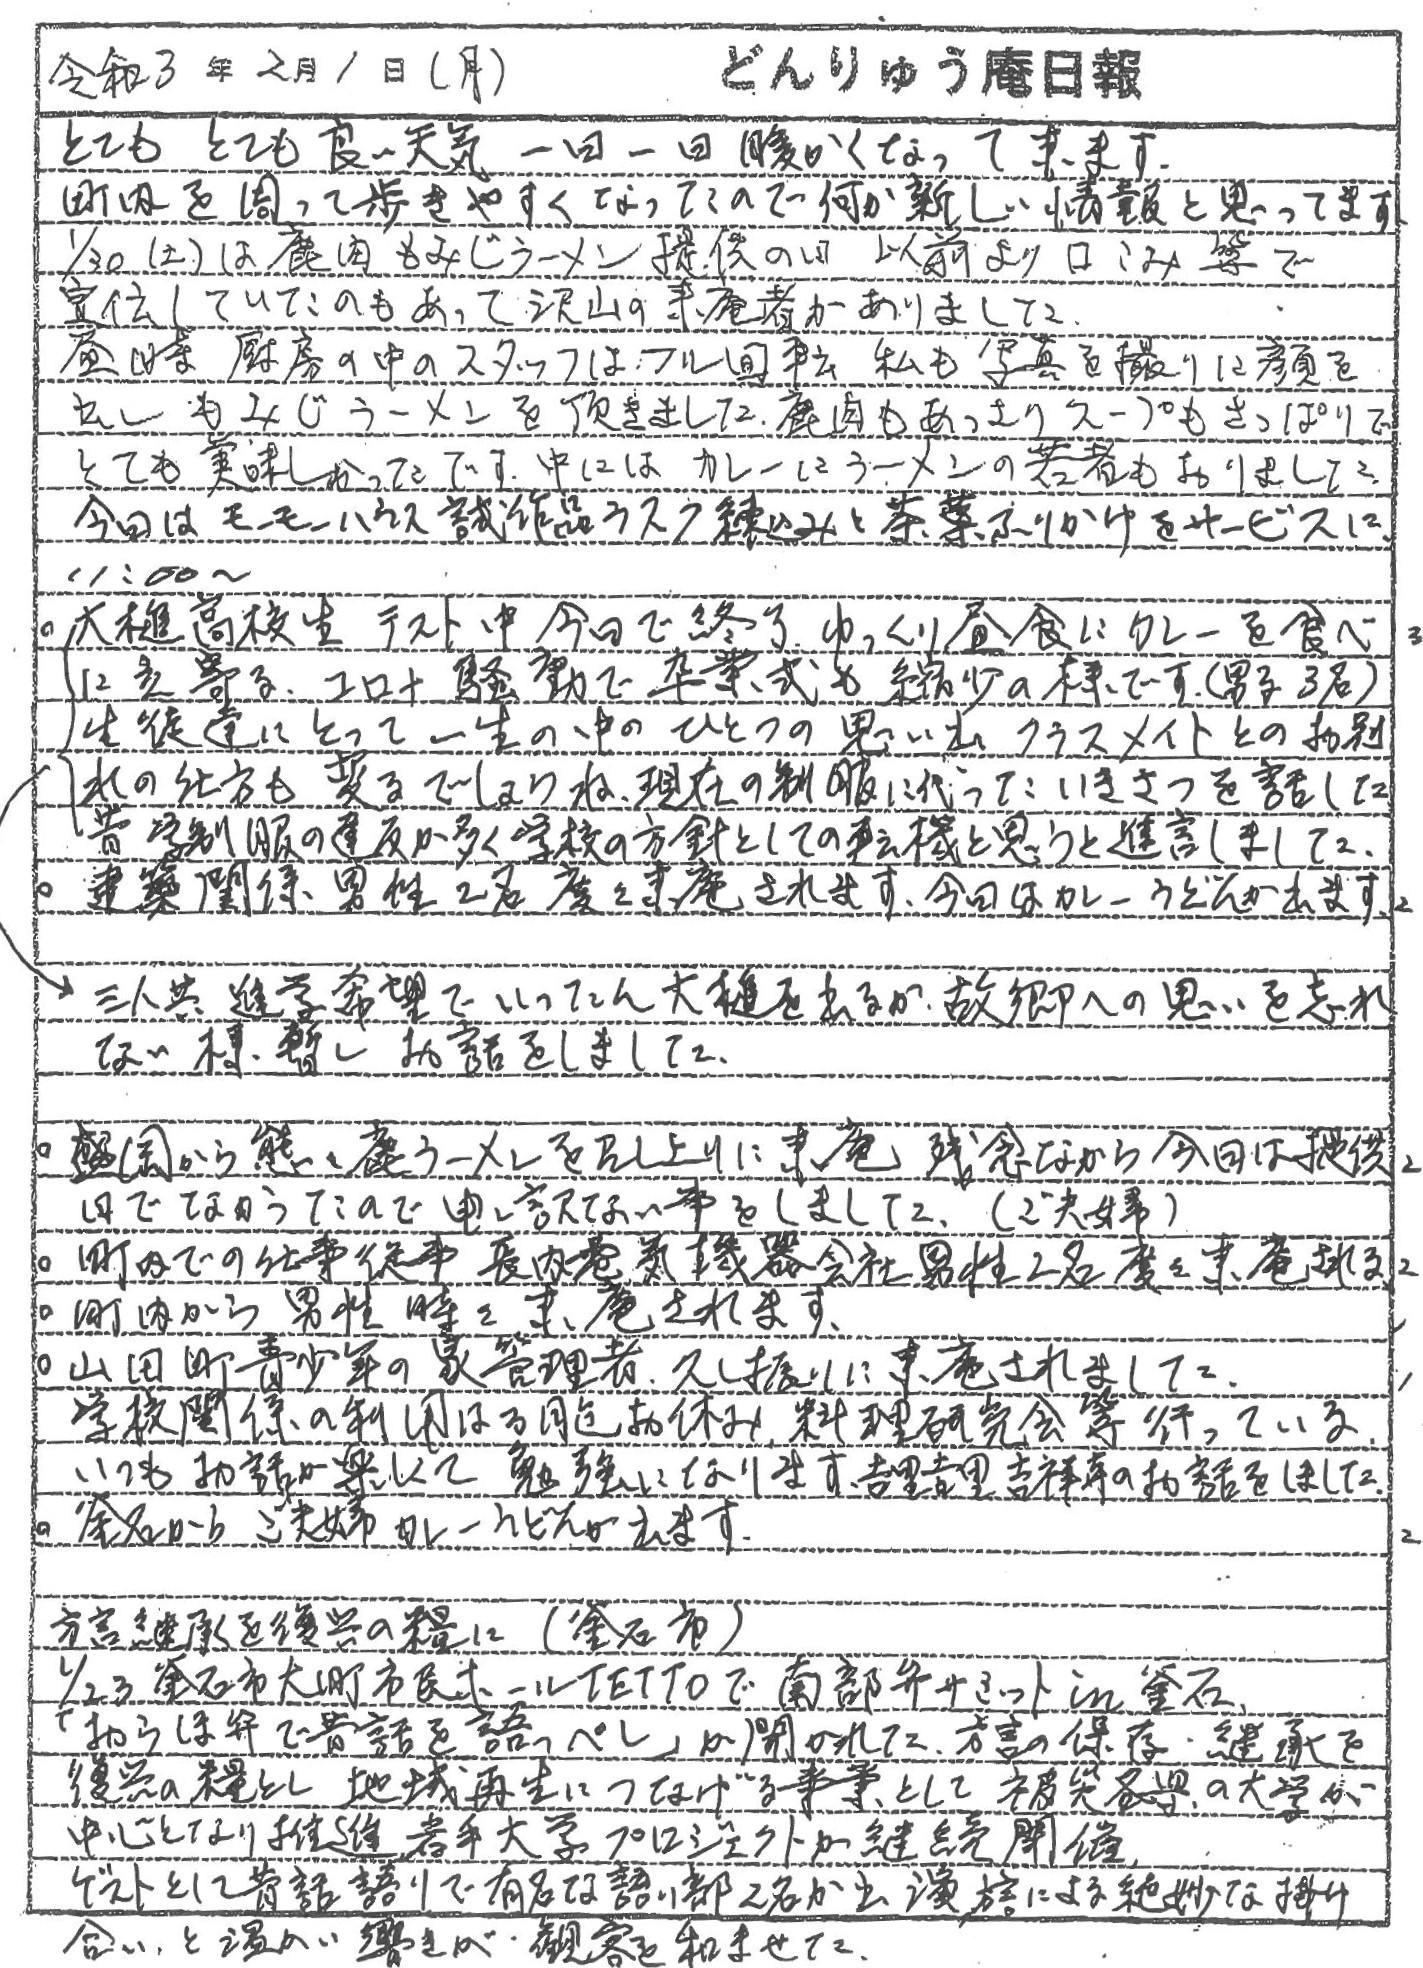 令和3年2月1日(月) どんりゅう庵日報
とても とても良い天気 一日一日暖かくなって来ます.
町内を周って歩きやすくなったので何か新しい情報と思ってます
1/30(土)は鹿肉もみじラーメン提供の日 以前より口こみ等で
宣伝していたのもあって沢山の来庵者がありました.
昼時 厨房の中のスタッフはフル回転 私も写真を撮りに顔を
出しもみじラーメンを頂きました.鹿肉もあっさりスープもさっぱりで
とても美味しかったです.中には カレーにラーメンの若者もおりました
今回はモーモーハウス試作品ラスク 込みと茶葉ふりかけをサービスに.
11:00~
○ 大槌高校生 テスト中 今日で終了.ゆっくり昼食にカレーを食べ 3
に立寄る.コロナ騒動で卒業式も縮少の様です.(男子3名)
生徒達にとって一生の中のひとつの思い出 クラスメイトとのお別
れの仕方も変るでしょうね.現在の制服に代ったいきさつを話した
昔 学制服の違反が多く学校の方針としての転機と思うと進言しました.
○ 建築関係 男性2名 度々来庵されます.今日はカレーうどんが出ます. 2
→ 三人共 進学希望でいったん大槌を出るが.故郷への思いを忘れ
ない様 暫しお話をしました.
○ 盛岡から熊、鹿ラーメンを召し上りに来庵 残念ながら今日は提供 2
日でなかったので申し訳ない事をしました.(ご夫婦)
○ 町内での仕事従事 長内電気機器会社男性2名度々来庵される. 2
○ 町内から 男性 時々来庵されます. 1
○ 山田町青少年の家管理者.久し振りに来庵されました. 1
学校関係の利用は3月迄お休み.料理研究会等行っている.
いつもお話が楽しくて勉強になります.吉里吉里吉祥寺のお話をしました.
○ 釜石から ご夫婦 カレーうどんが出ます. 2
方言継承を復興の糧に (釜石市)
1/23 釜石市大町市民ホールTETTOで 南部弁サミットin釜石.
「おらほ弁で昔話を語っぺし」が開かれた.方言の保存・継承を
復興の糧とし 地域再生につなげる事業として 被災各県の大学が
中心となり推進 岩手大学プロジェクトが継続開催.
ゲストとして昔話語りで有名な語り部2名が出演 方言による絶妙な掛け
合い.と温かい響きが.観客を和ませた.